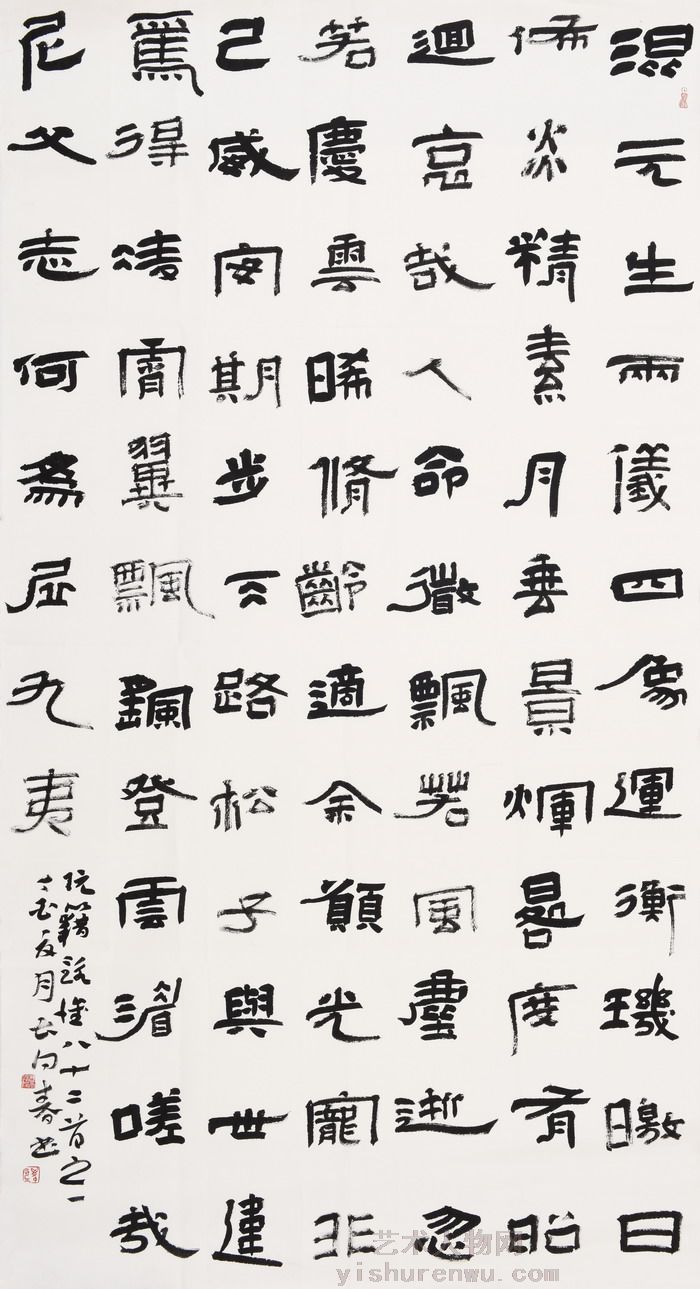 混元生兩儀四象運衡璣曒日
佈炎精素月垂景輝晷度有昭
迴哀哉人命微飄若風塵逝忽
若慶雲晞脩齡適余願光寵非
己威安期步天路松子與世違
焉得凌霄翼飄颻登雲湄嗟哉
尼父志何為居九夷
阮籍詠懷八十二首之一
月春書
艺术人物网
yishurenwu.com